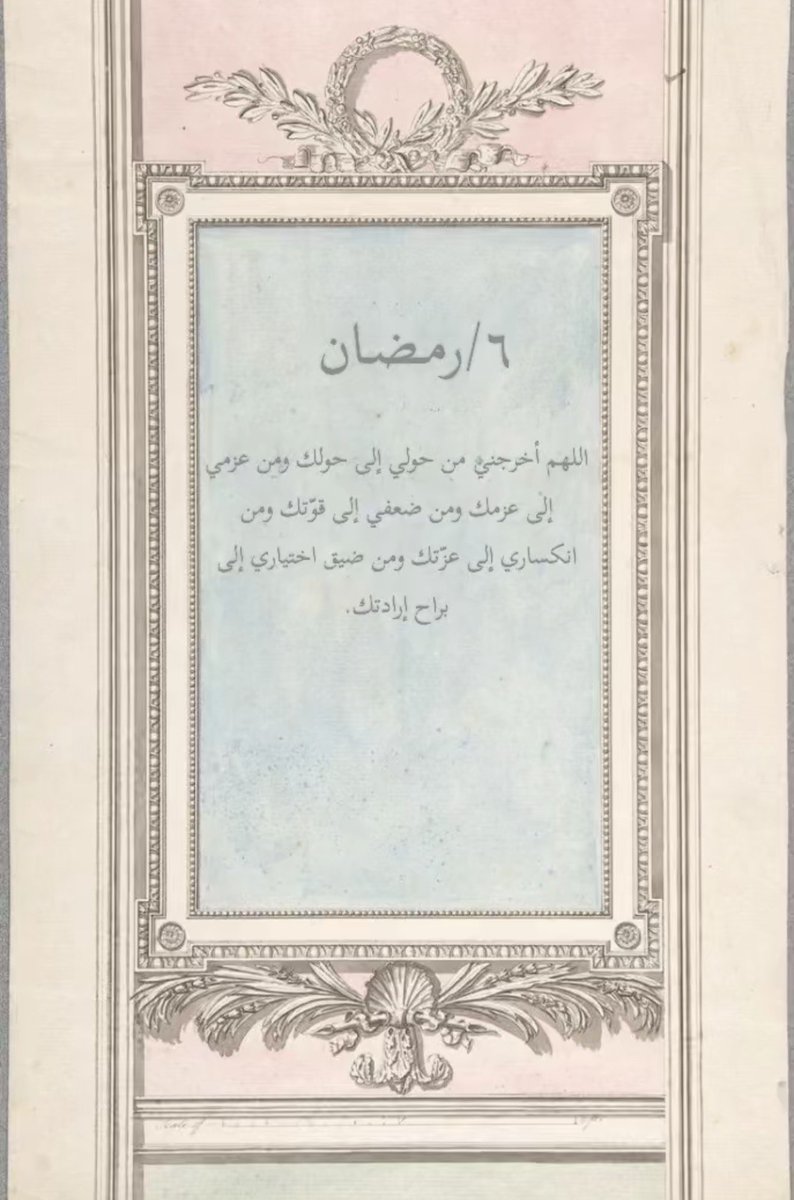 ٦/رمضان
اللهم أخرجني من حولي إلى حولك ومن عزمي
إلى عزمك ومن ضعفي إلى قوّتك ومن
انكساري إلى عزّتك ومن ضيق اختياري إلى
براح إرادتك.
Scale of